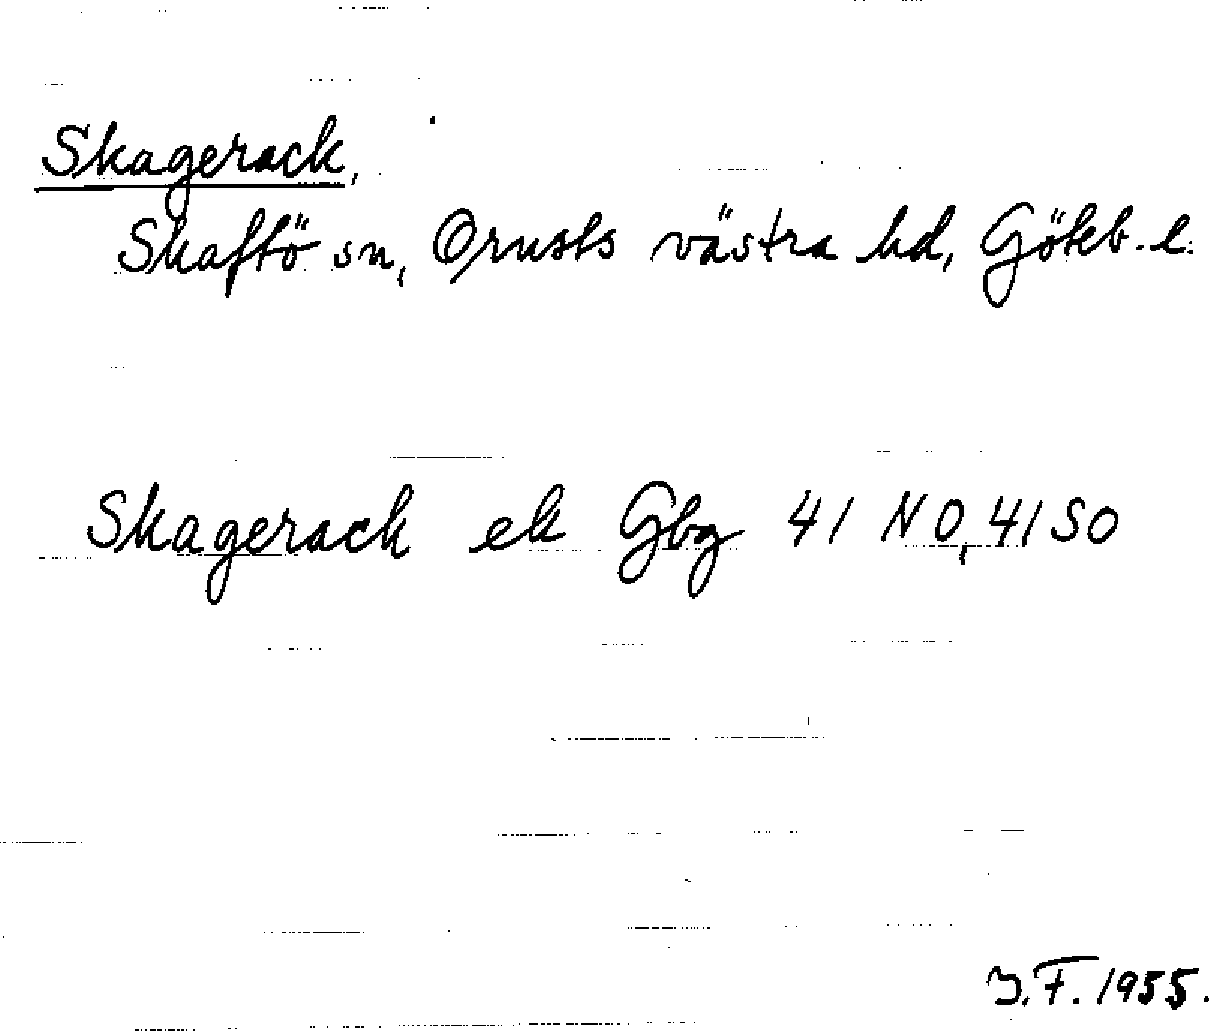 Skagerack,
Skaftö sn, Orusts västra hd, Göteb. l.
Skagerack ek Gbg 41 NO, 41 SO
J.F. 1955.